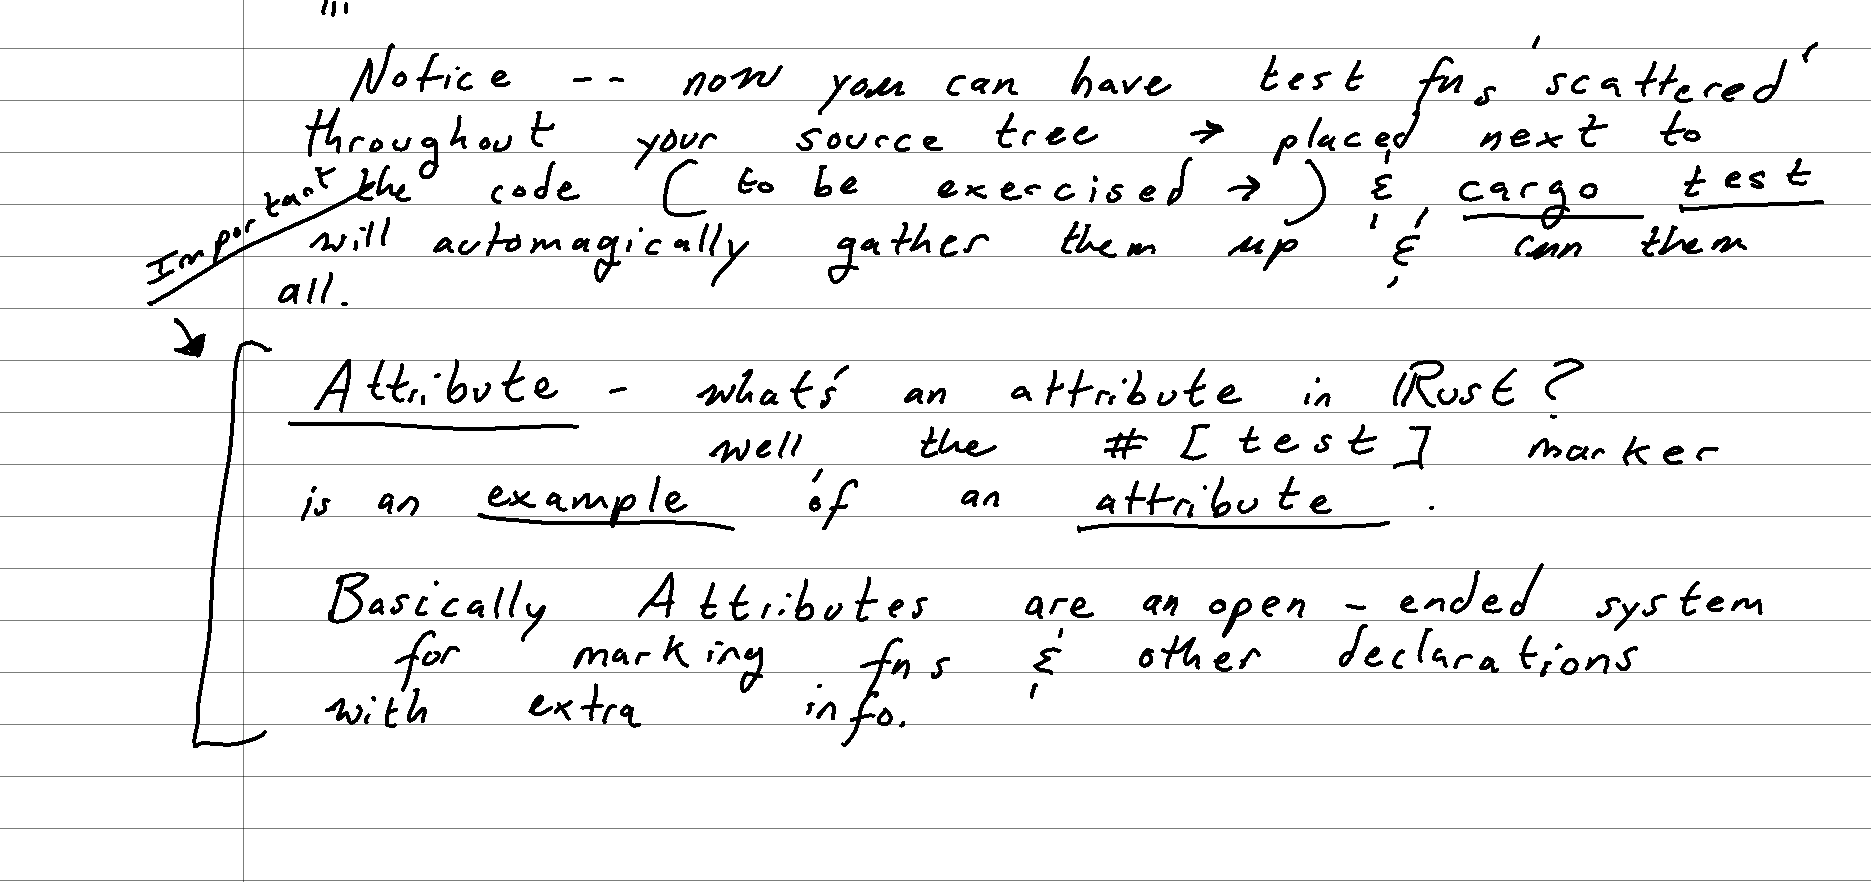 Notice -- now you can have test fns 'scattered'
throughout your source tree → placed next to
the code ( to be exercised → ) & cargo test
will automagically gather them up & run them
all.
Important
Attribute - what's an attribute in Rust?
well, the #[test] marker
is an example of an attribute.
Basically Attributes are an open-ended system
for marking fns & other declarations
with extra info.